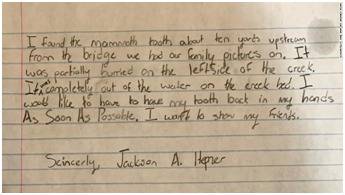 I found the mammoth tooth about ten yards upstream
from the bridge we had our family pictures on. It
was partially burried on the left side of the creek.
It was completely out of the water on the creek bed. I
would like to have to have my tooth back in my hands
As Soon As Possable. I want to show my friends.
Scincerly, Jackson A. Hepner